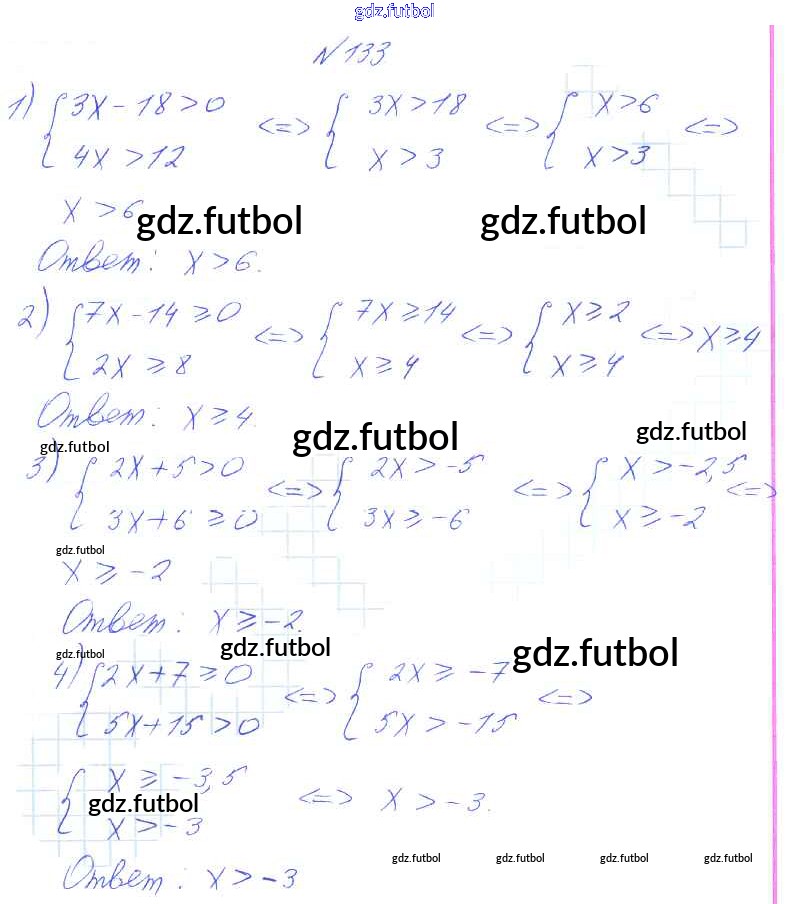 gdz.futbol
N 133
1) { 3x - 18 > 0 <=> { 3x > 18 <=> { x > 6 <=>
4x > 12 x > 3 x > 3
x > 6
gdz.futbol gdz.futbol
Ответ: x > 6.
2) { 7x - 14 ⩾ 0 <=> { 7x ⩾ 14 <=> { x ⩾ 2 <=> x ⩾ 4
2x ⩾ 8 x ⩾ 4 x ⩾ 4
Ответ: x ⩾ 4.
gdz.futbol gdz.futbol gdz.futbol
3) { 2x + 5 > 0 <=> { 2x > -5 <=> { x > -2,5 <=>
3x + 6 ⩾ 0 3x ⩾ -6 x ⩾ -2
gdz.futbol
x ⩾ -2
Ответ: x ⩾ -2.
gdz.futbol gdz.futbol gdz.futbol
4) { 2x + 7 ⩾ 0 <=> { 2x ⩾ -7 <=>
5x + 15 > 0 5x > -15
{ x ⩾ -3,5 <=> x > -3.
gdz.futbol
x > -3
gdz.futbol gdz.futbol gdz.futbol gdz.futbol
Ответ: x > -3